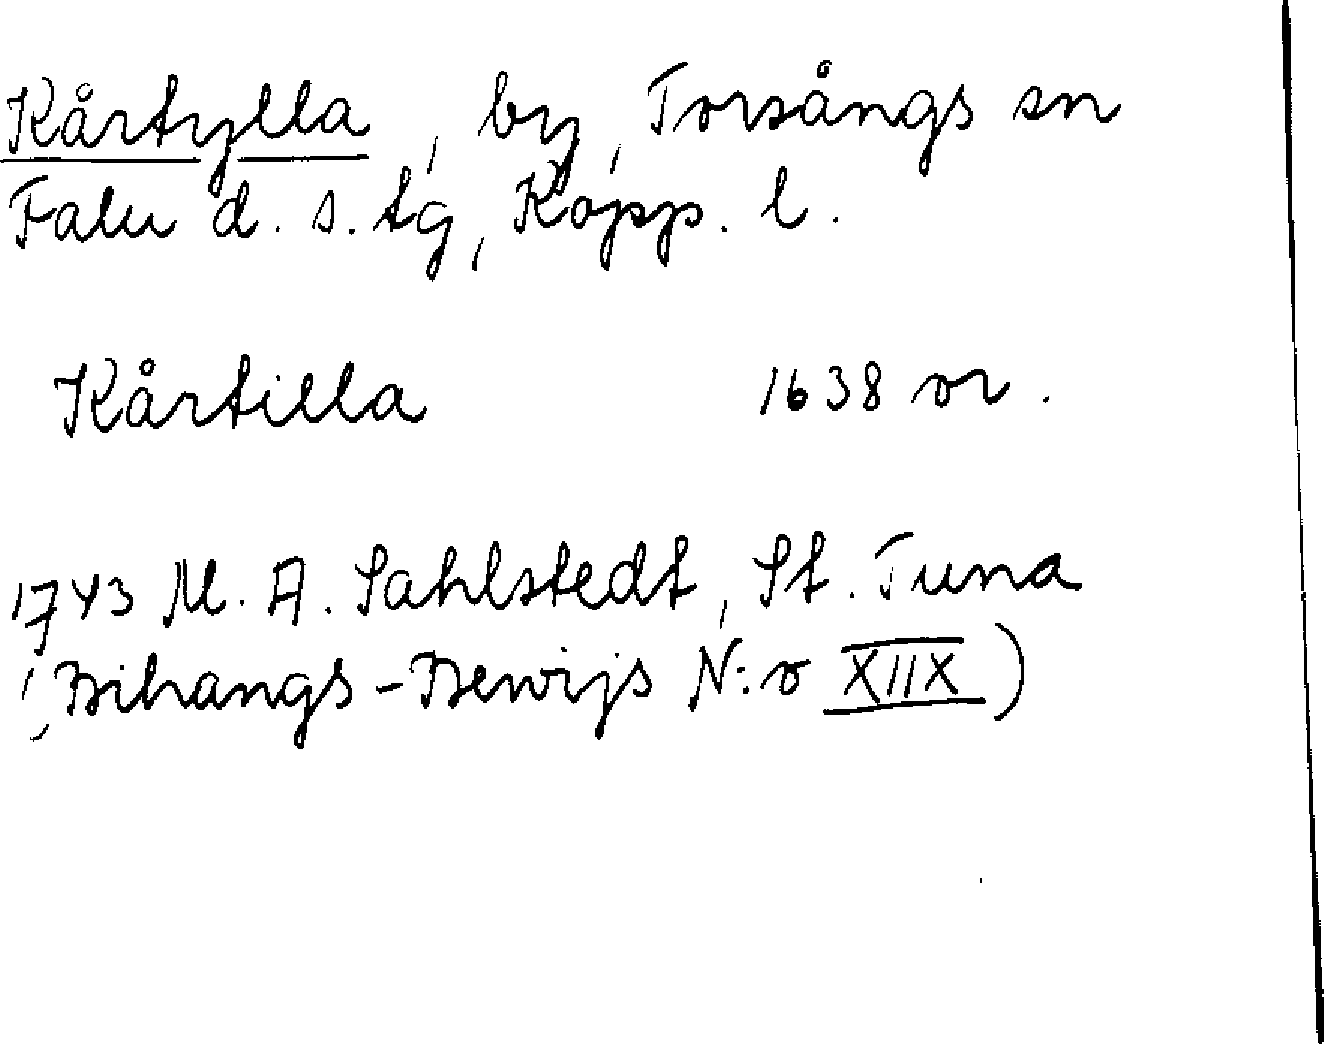 Kårtylla, by, Torsångs sn
Falu d. s. tg, Kopp. l.
Kårtilla 1638 or.
1743 M. A. Sahlstedt, St. Tuna
(Bihangs-Bewijs N:o XIIX)